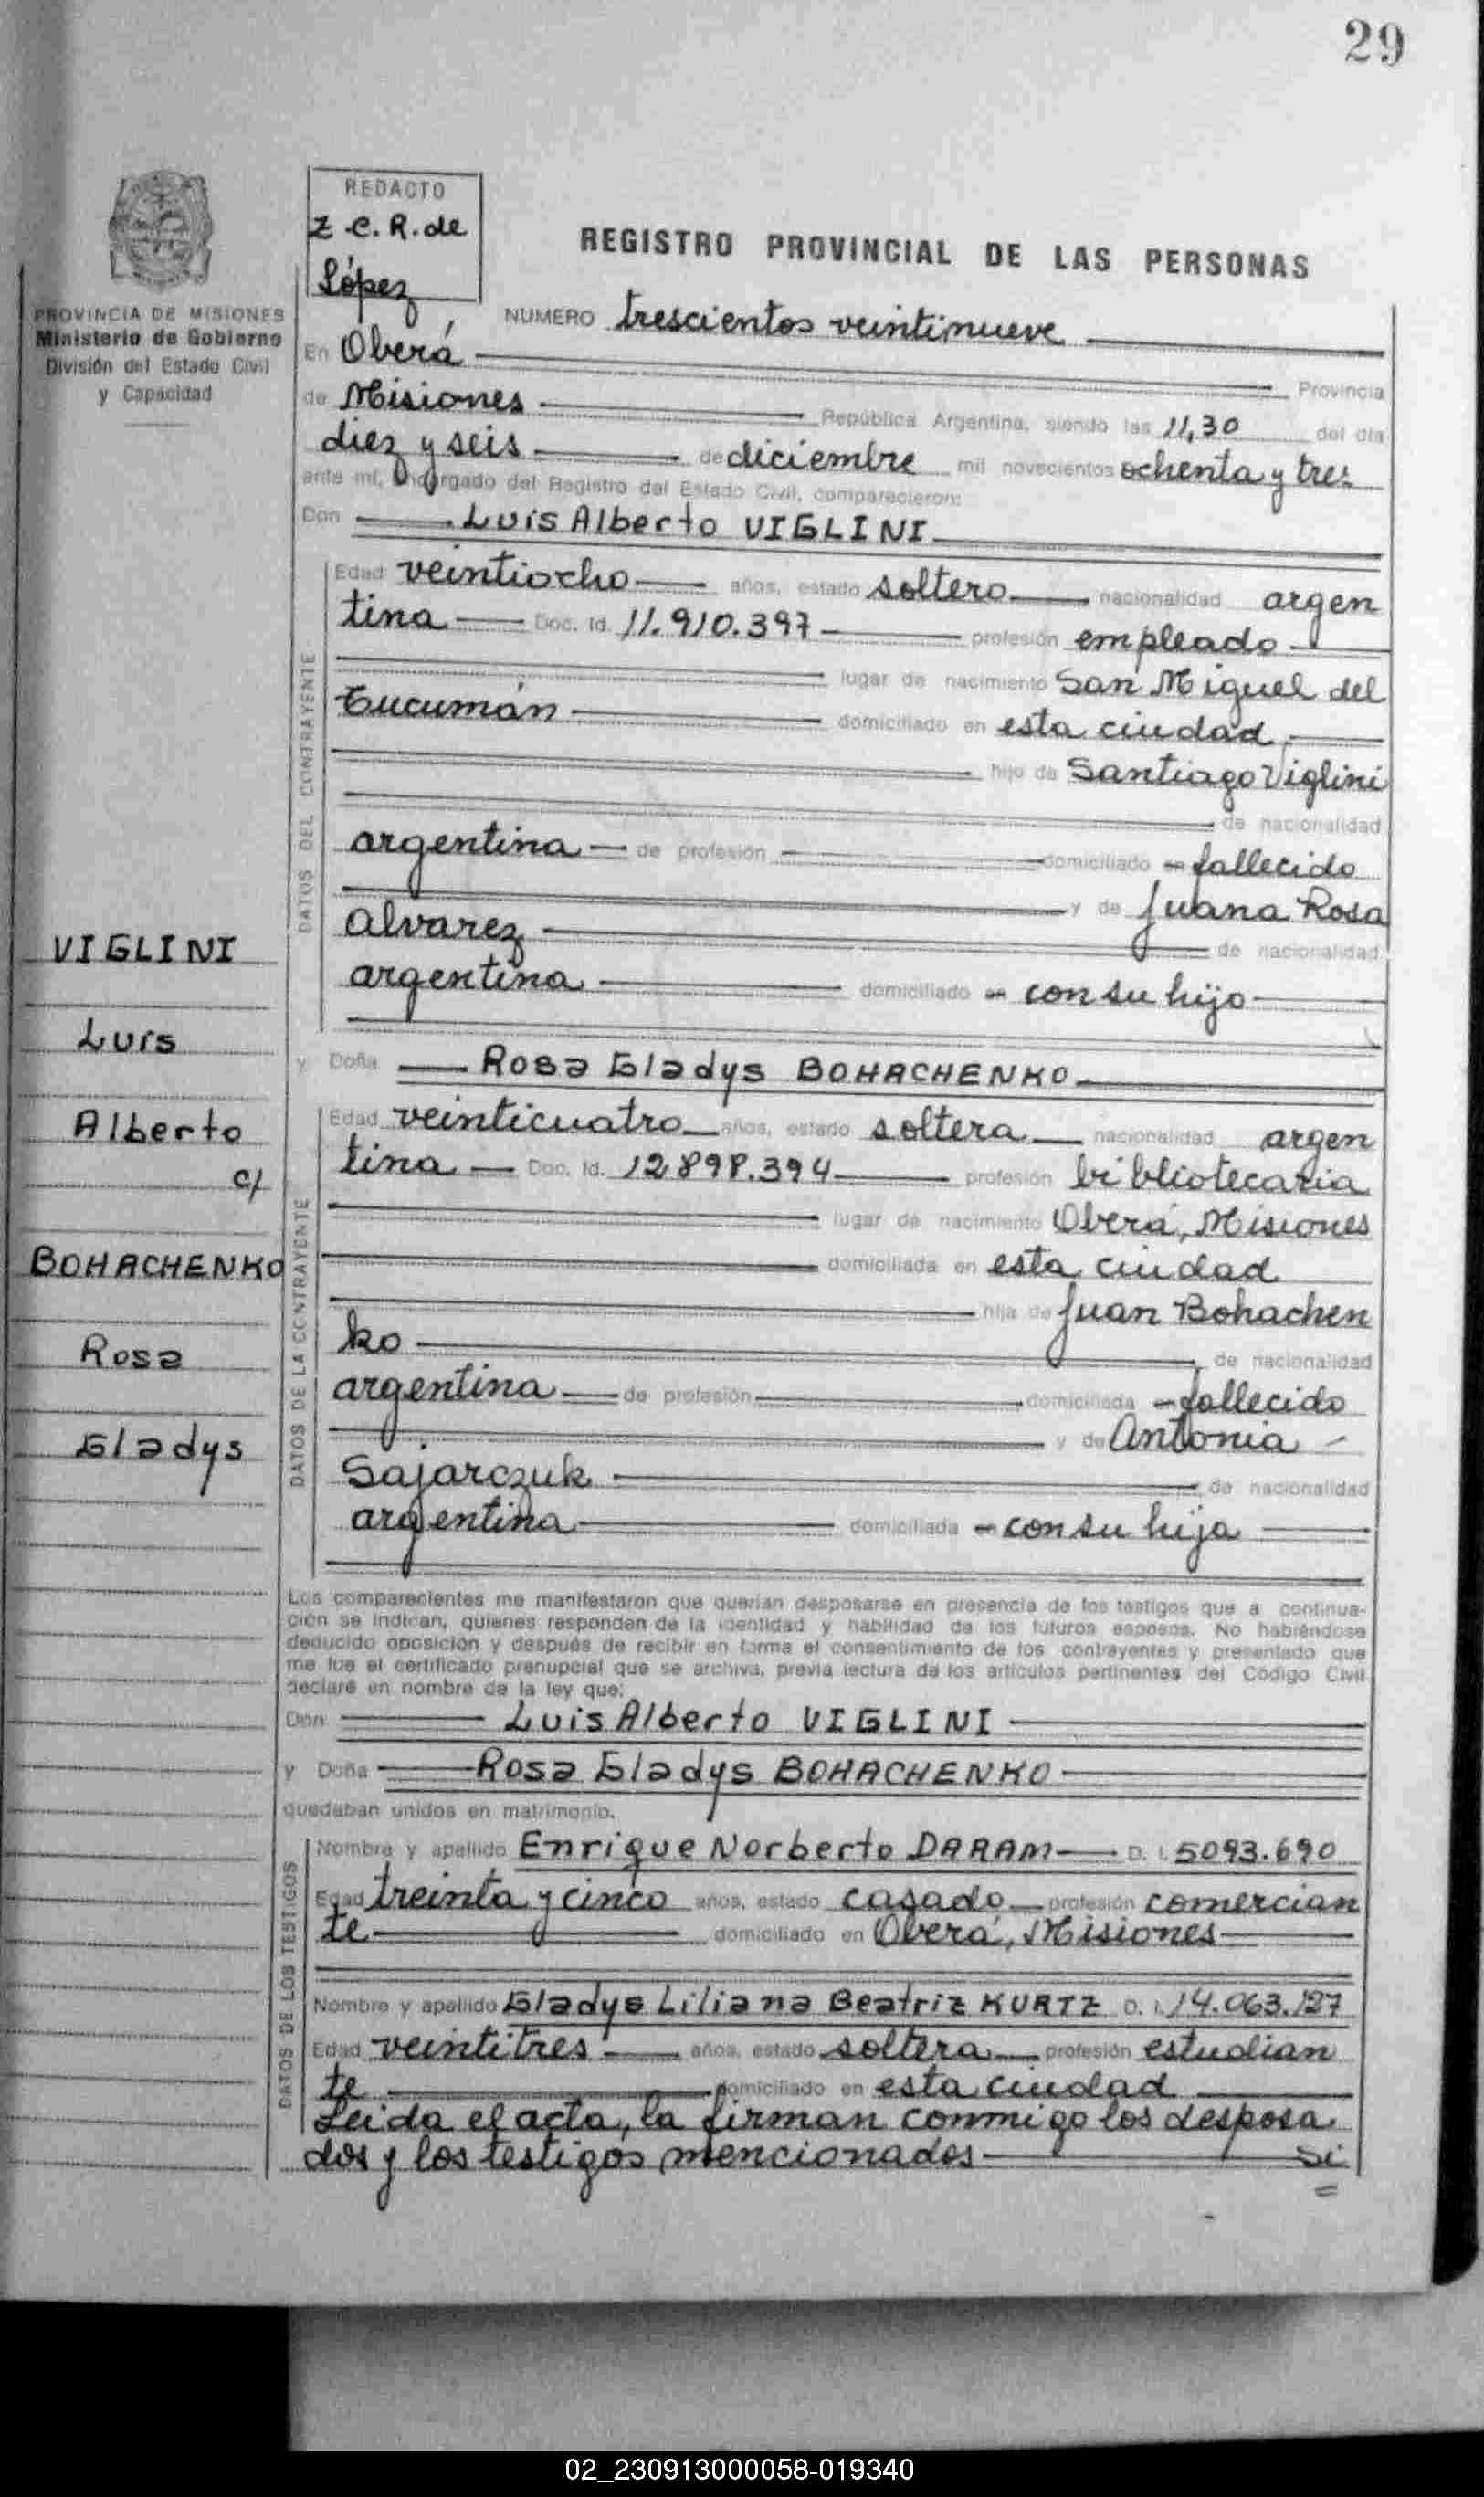 29
REDACTO
Z.C.R. de
López
REGISTRO PROVINCIAL DE LAS PERSONAS
PROVINCIA DE MISIONES
Ministerio de Gobierno
División del Estado Civil
y Capacidad
NUMERO trescientos veintinueve
En Oberá
Provincia
de Misiones República Argentina, siendo las 11,30 del día
diez y seis de diciembre mil novecientos ochenta y tres
ante mí, Encargado del Registro del Estado Civil, comparecieron:
Don Luis Alberto VIGLINI
DATOS DEL CONTRAYENTE
Edad veintiocho años, estado soltero nacionalidad argen
tina Doc. Id. 11.910.397 profesión empleado
lugar de nacimiento San Miguel del
Tucumán domiciliado en esta ciudad
hijo de Santiago Viglini
de nacionalidad
argentina de profesión domiciliado en fallecido
y de Juana Rosa
Alvarez de nacionalidad
argentina domiciliado en con su hijo
VIGLINI
Luis
Alberto
c/
BOHACHENKO
Rosa
Gladys
y Doña Rosa Gladys BOHACHENKO
DATOS DE LA CONTRAYENTE
Edad veinticuatro años, estado soltera nacionalidad argen
tina Doc. Id. 12.898.394 profesión bibliotecaria
lugar de nacimiento Oberá, Misiones
domiciliada en esta ciudad
hija de Juan Bohachen
ko de nacionalidad
argentina de profesión domiciliada en fallecido
y de Antonia
Sajarczuk de nacionalidad
argentina domiciliada en con su hija
Los comparecientes me manifestaron que querían desposarse en presencia de los testigos que a continua-
ción se indican, quienes responden de la identidad y habilidad de los futuros esposos. No habiéndose
deducido oposición y después de recibir en forma el consentimiento de los contrayentes y presentado que
me fue el certificado prenupcial que se archiva, previa lectura de los artículos pertinentes del Código Civil
declaré en nombre de la ley que:
Don Luis Alberto VIGLINI
y Doña Rosa Gladys BOHACHENKO
quedaban unidos en matrimonio.
DATOS DE LOS TESTIGOS
Nombre y apellido Enrique Norberto DARAM D. I. 5093.690
Edad treinta y cinco años, estado casado profesión comercian
te domiciliado en Oberá, Misiones
Nombre y apellido Gladys Liliana Beatriz KURTZ D. I. 14.063.127
Edad veintitres años, estado soltera profesión estudian
te domiciliado en esta ciudad
Leida el acta, la firman conmigo los desposa
dos y los testigos mencionados Si
02_230913000058-019340